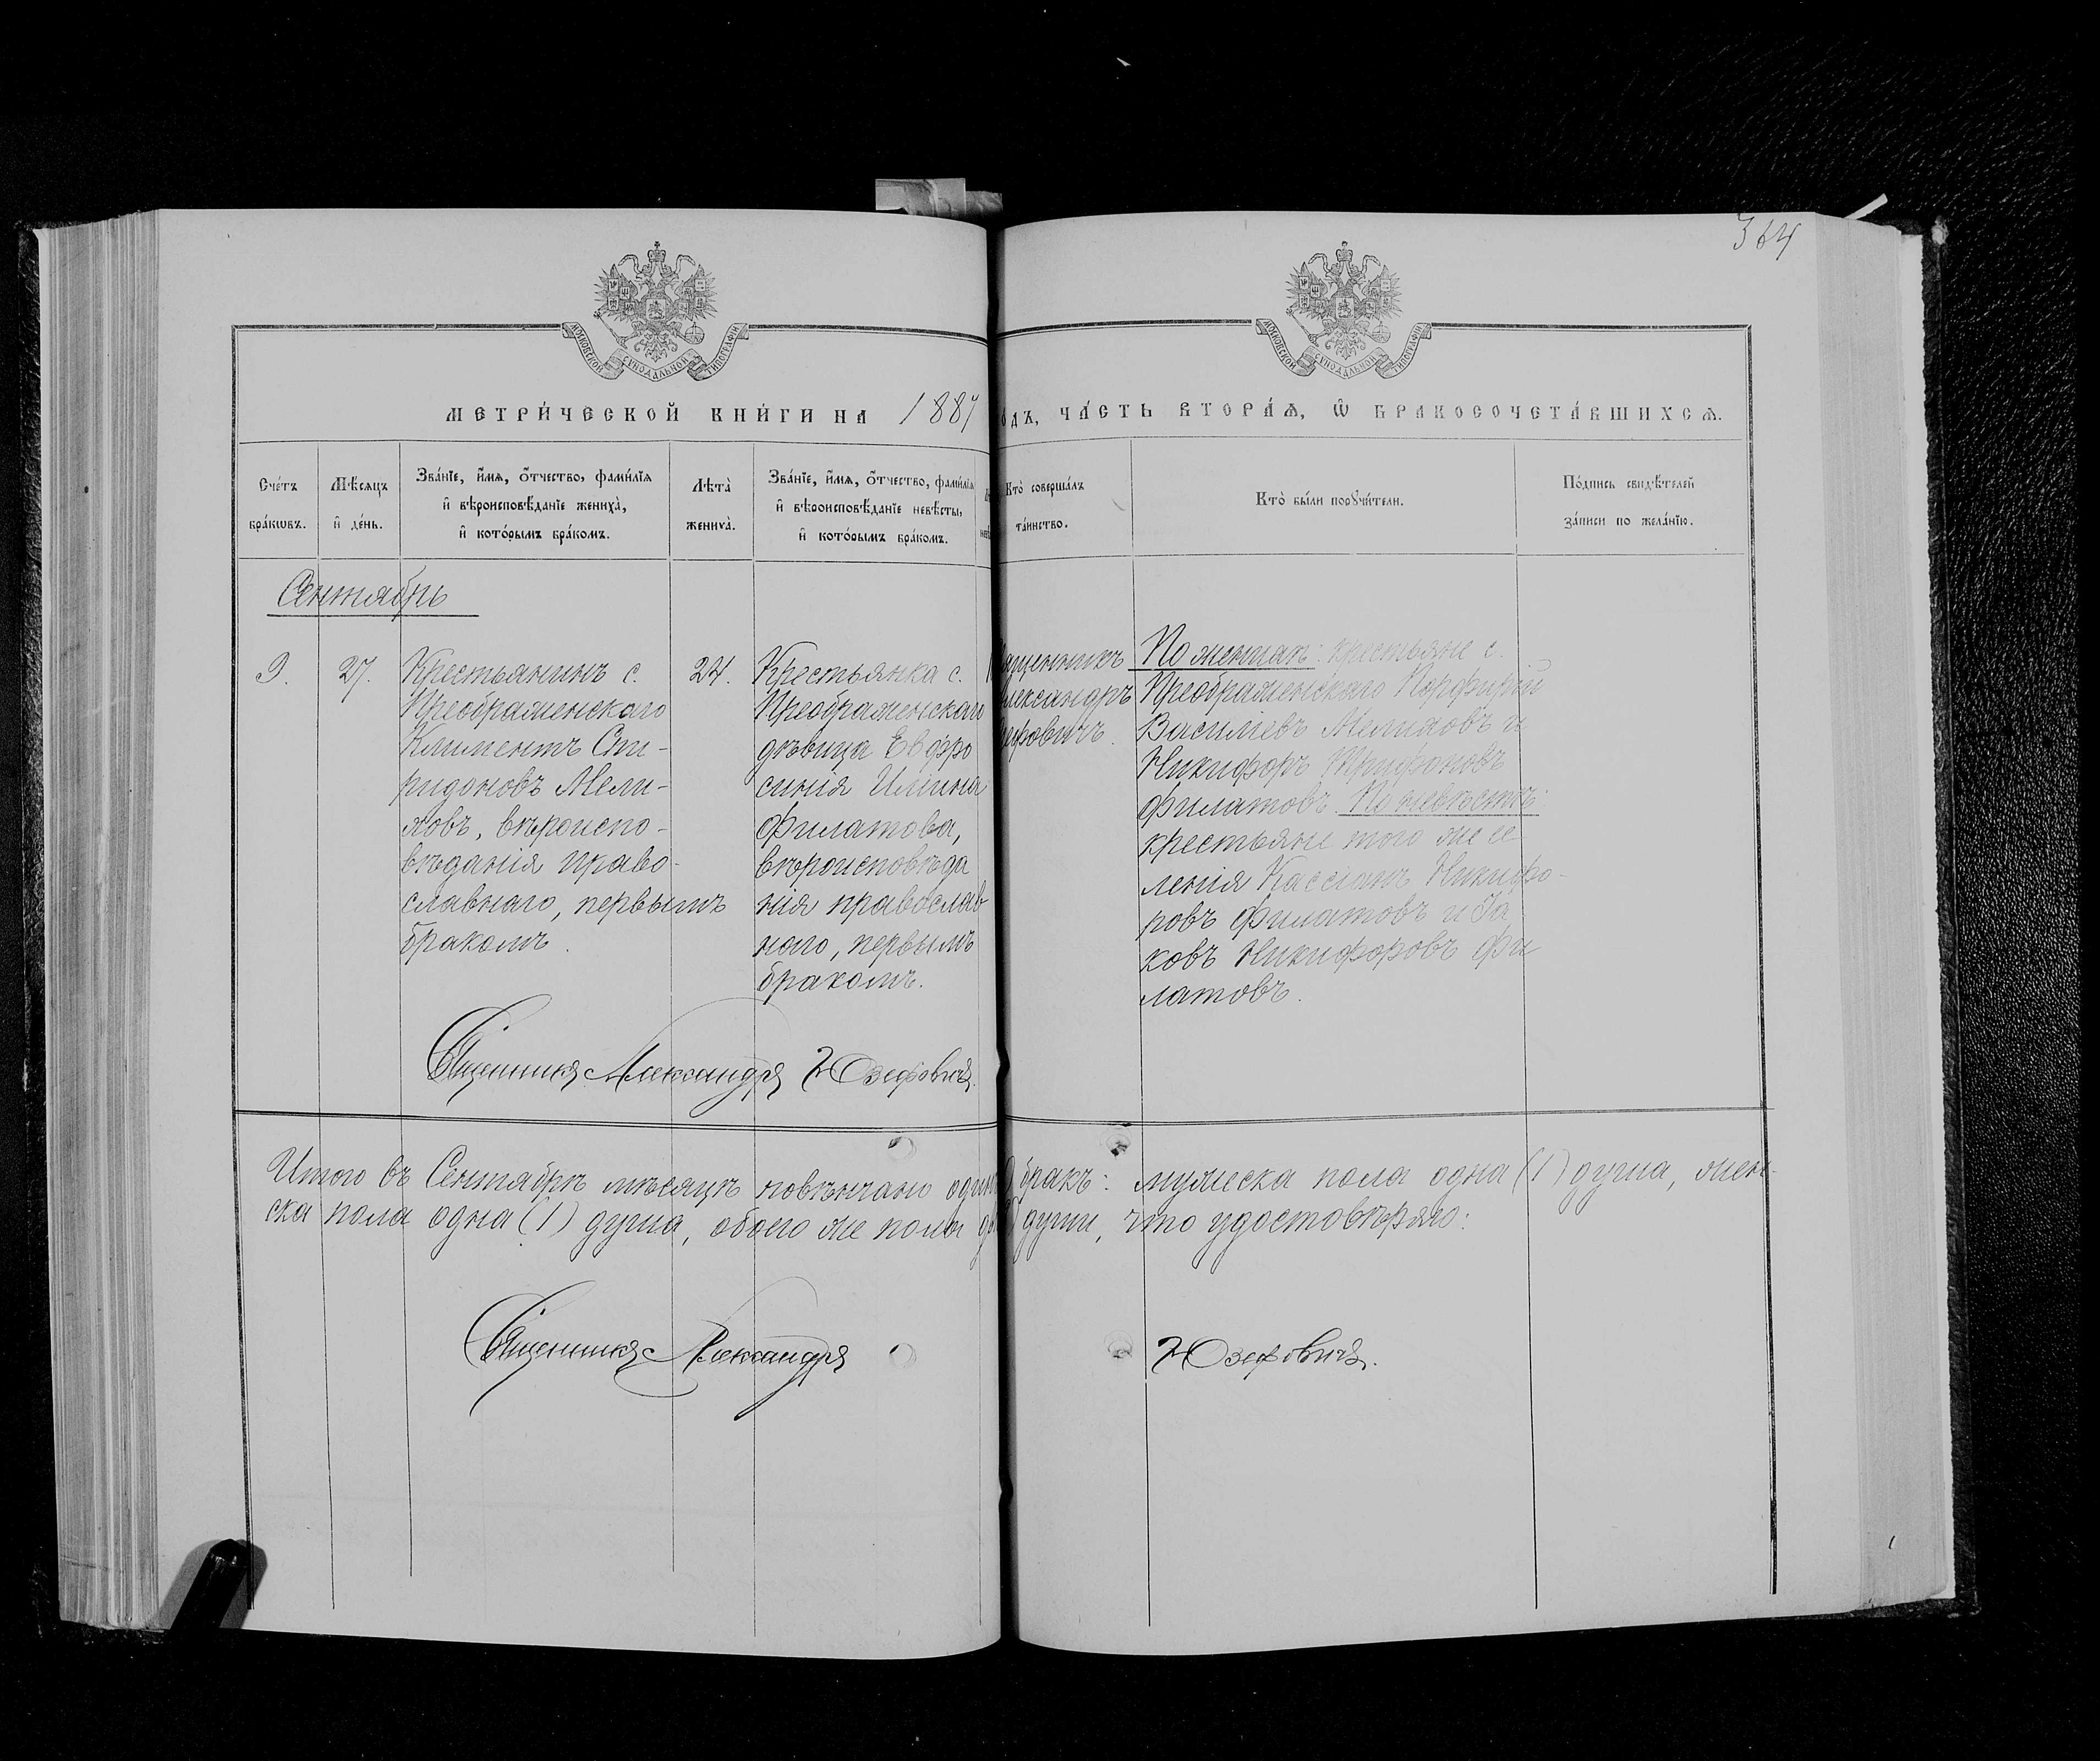 364
МОСКОВСКОЙ СѴНОДАЛЬНОЙ ТИПОГРАФІИ
МОСКОВСКОЙ СѴНОДАЛЬНОЙ ТИПОГРАФІИ
МЕТРИ́ЧЕСКОЙ КНИ́ГИ НА 1887
о́дъ, ЧА́СТЬ ВТОРА́Ѧ, Ѡ҆ БРАКОСОЧЕТА́ВШИХСѦ.
Сче́тъ
бра́кѡвъ.
Мѣ́сѧцъ
и҆ де́нь.
Зва́нїе, и҆́мѧ, о҆́тчество, фами́лїѧ
и҆ вѣроисповѣ́данїе жениха̀,
и҆ кото́рымъ бра́комъ.
Лѣта̀
жениха̀.
Зва́нїе, и҆́мѧ, о҆́тчество, фами́лїѧ
и҆ вѣроисповѣ́данїе невѣ́сты,
и҆ кото́рымъ бра́комъ.
Кто̀ соверша́лъ
та́инство.
Кто̀ бы́ли порꙋчи́тели.
По́дпись свидѣ́телей
за́писи по жела́нїю.
Сентябрь
9.
27.
Крестьянинъ с.
Преображенскаго
Климентъ Спи-
ридоновъ Мели-
ховъ, вѣроиспо-
вѣданія право-
славнаго, первымъ
бракомъ.
24.
Крестьянка с.
Преображенскаго
дѣвица Евфро
синія Ильина
Филатова,
вѣроисповѣда
нія православ
наго, первымъ
бракомъ.
ященникъ
лександръ
зефовичъ.
По женихѣ: крестьяне с.
Преображенскаго Порфирій
Васильевъ Мелиховъ и
Никифоръ Трифоновъ
Филатовъ. По невѣстѣ:
крестьяне того же се
ленія Кассіанъ Никифо-
ровъ Филатовъ и Іа
ковъ Никифоровъ Фи
латовъ.
Священникъ Александръ Юзефовичъ.
Итого въ Сентябрѣ мѣсяцѣ повѣнчано одинъ бракъ: мужеска пола одна (1) душа, жен-
ска пола одна (1) душа, обоего же пола души, что удостовѣряю:
Священникъ Александръ Юзефовичъ.